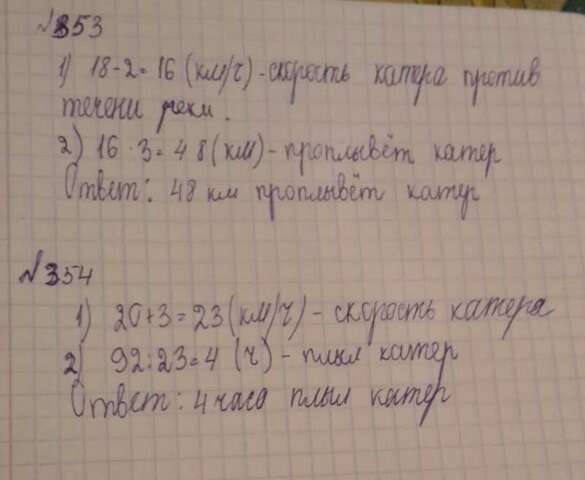 №353
1) 18-2=16 (км/ч) - скорость катера против
течени реки.
2) 16·3=48 (км) - проплывёт катер
Ответ: 48 км проплывёт катер
№354
1) 20+3=23 (км/ч) - скорость катера
2) 92:23=4 (ч) - плыл катер
Ответ: 4 часа плыл катер